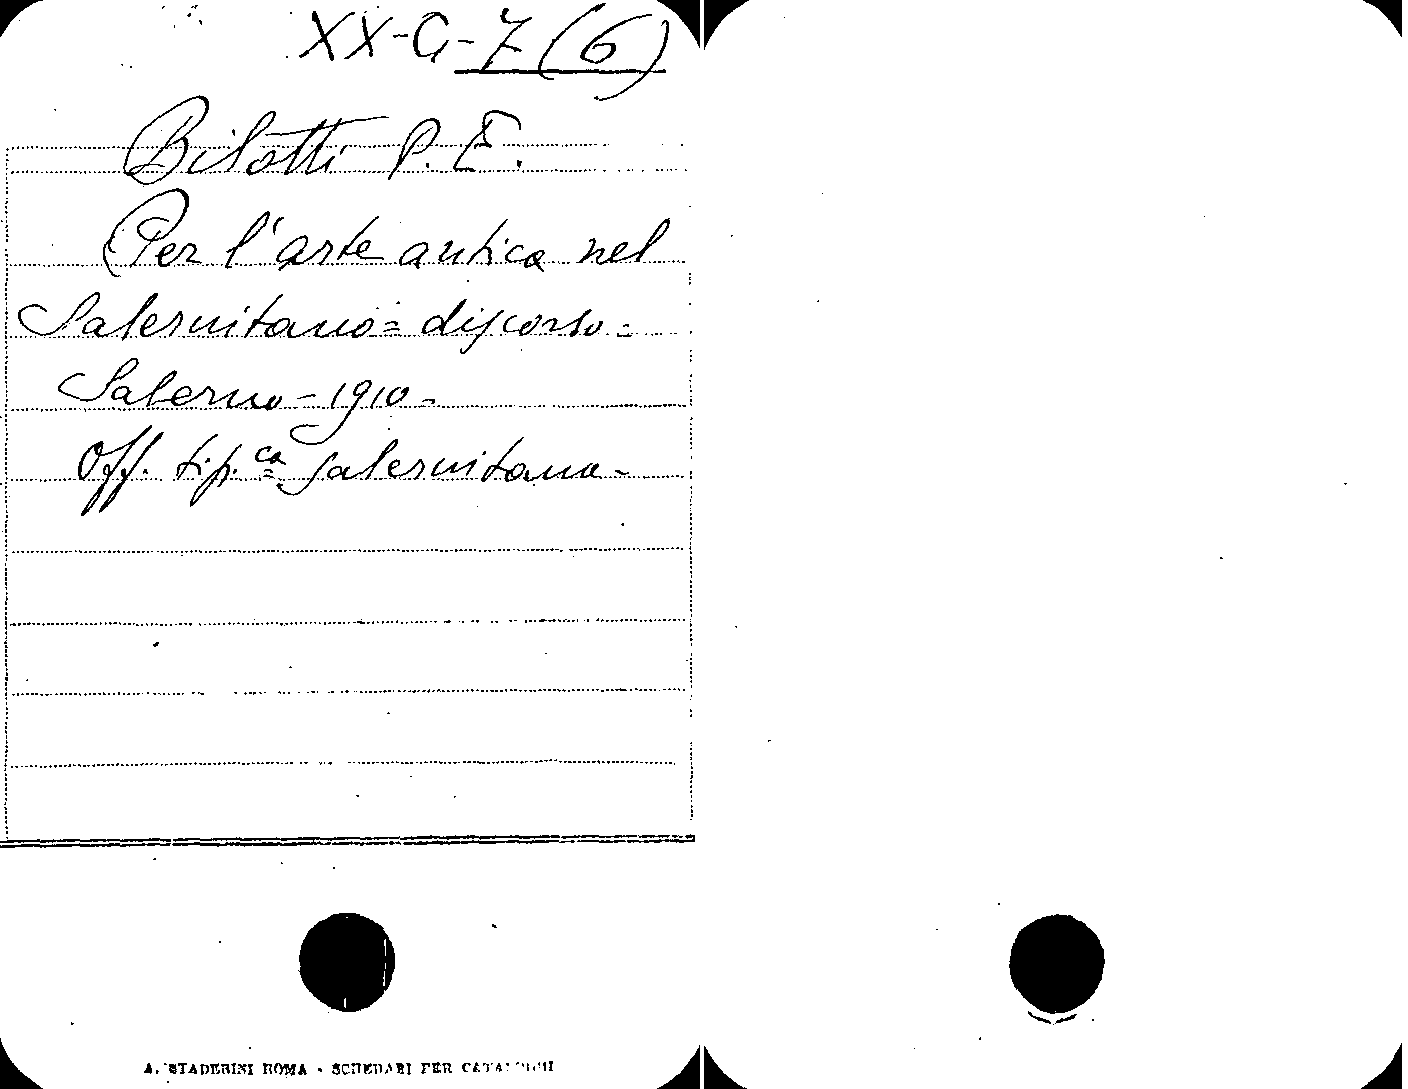 XX-G-7(6)
Bilotti P. E.
Per l'arte antica nel
Salernitano = discorso -
Salerno - 1910 -
Off. tip.ca salernitana -
A. STADERINI ROMA - SCHEDARI PER CATALOGHI